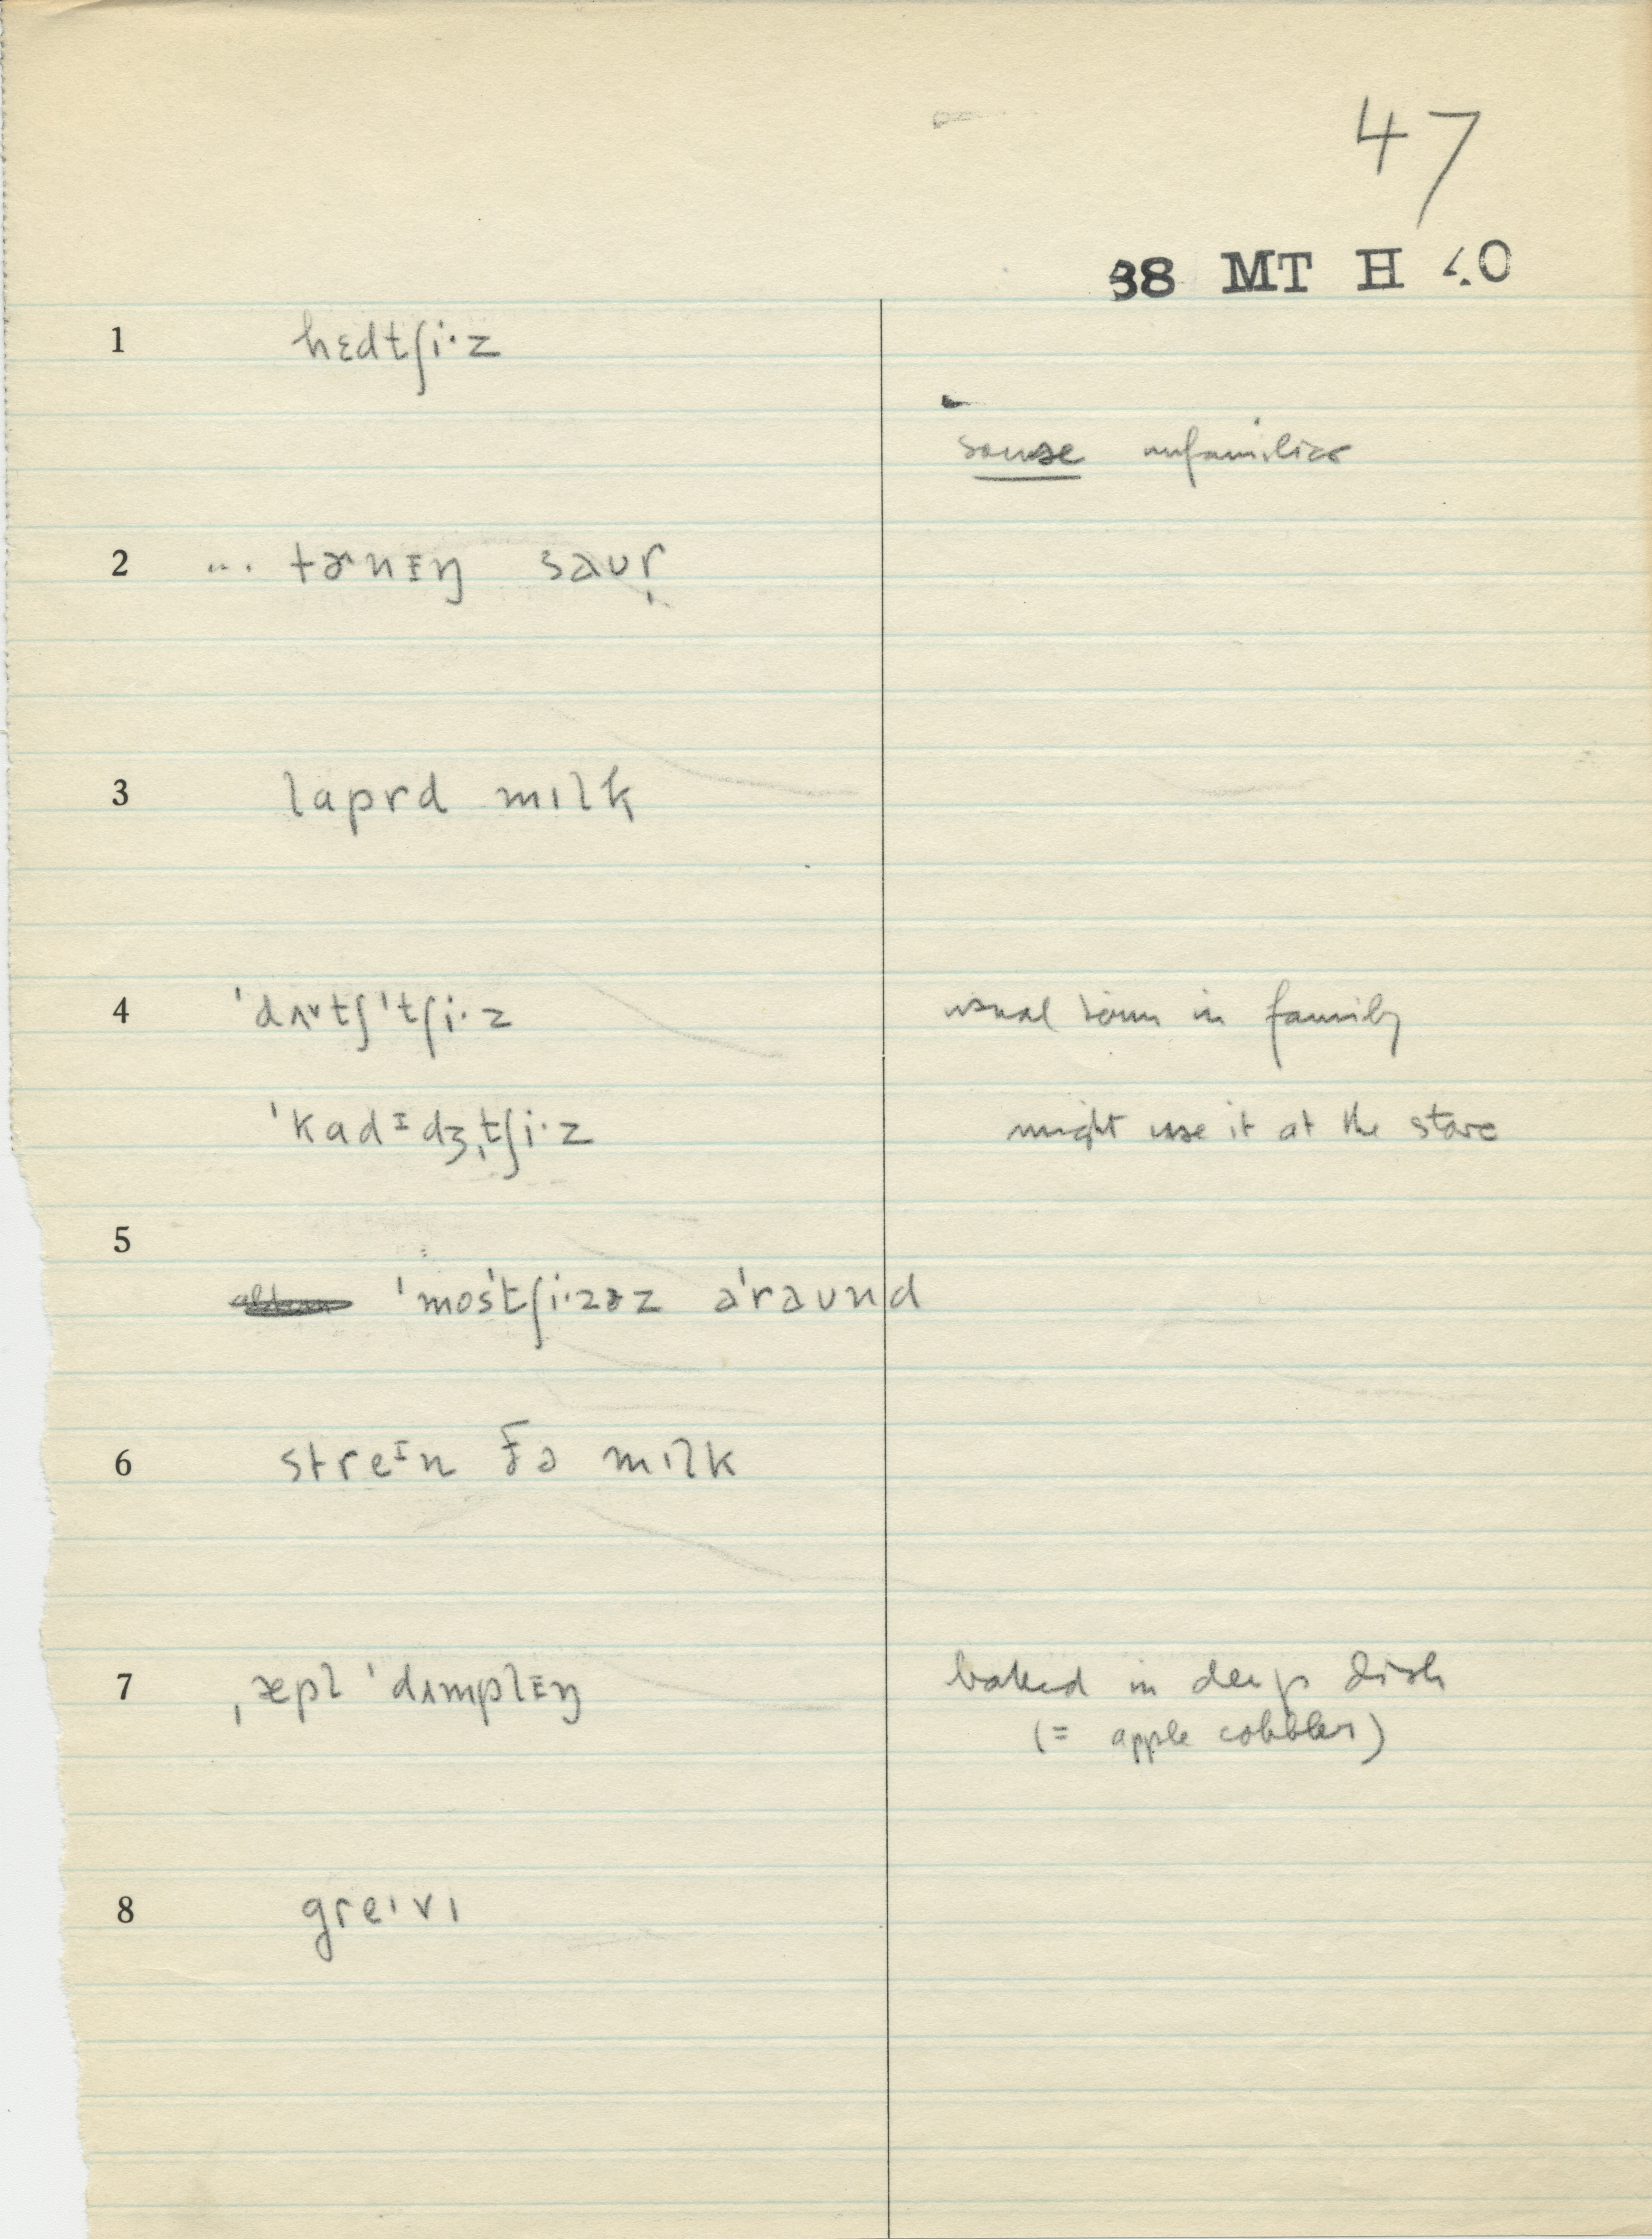 47
38 MT H 40
1 hɛdtʃi·z
souse unfamiliar
2 ... tɚnɪŋ saʊr̩
3 laprd mɪlk
4 ˈdʌ˅tʃˈtʃi·z usual term in family
ˈkadɪdʒˌtʃi·z might use it at the store
5
ˈmosˈtʃi·zəz əˈraʊnd
6 streɪn ðə mɪlk
7 ˌæpl ˈdʌmplɪŋ baked in deep dish
(= apple cobbler)
8 greɪvɪ